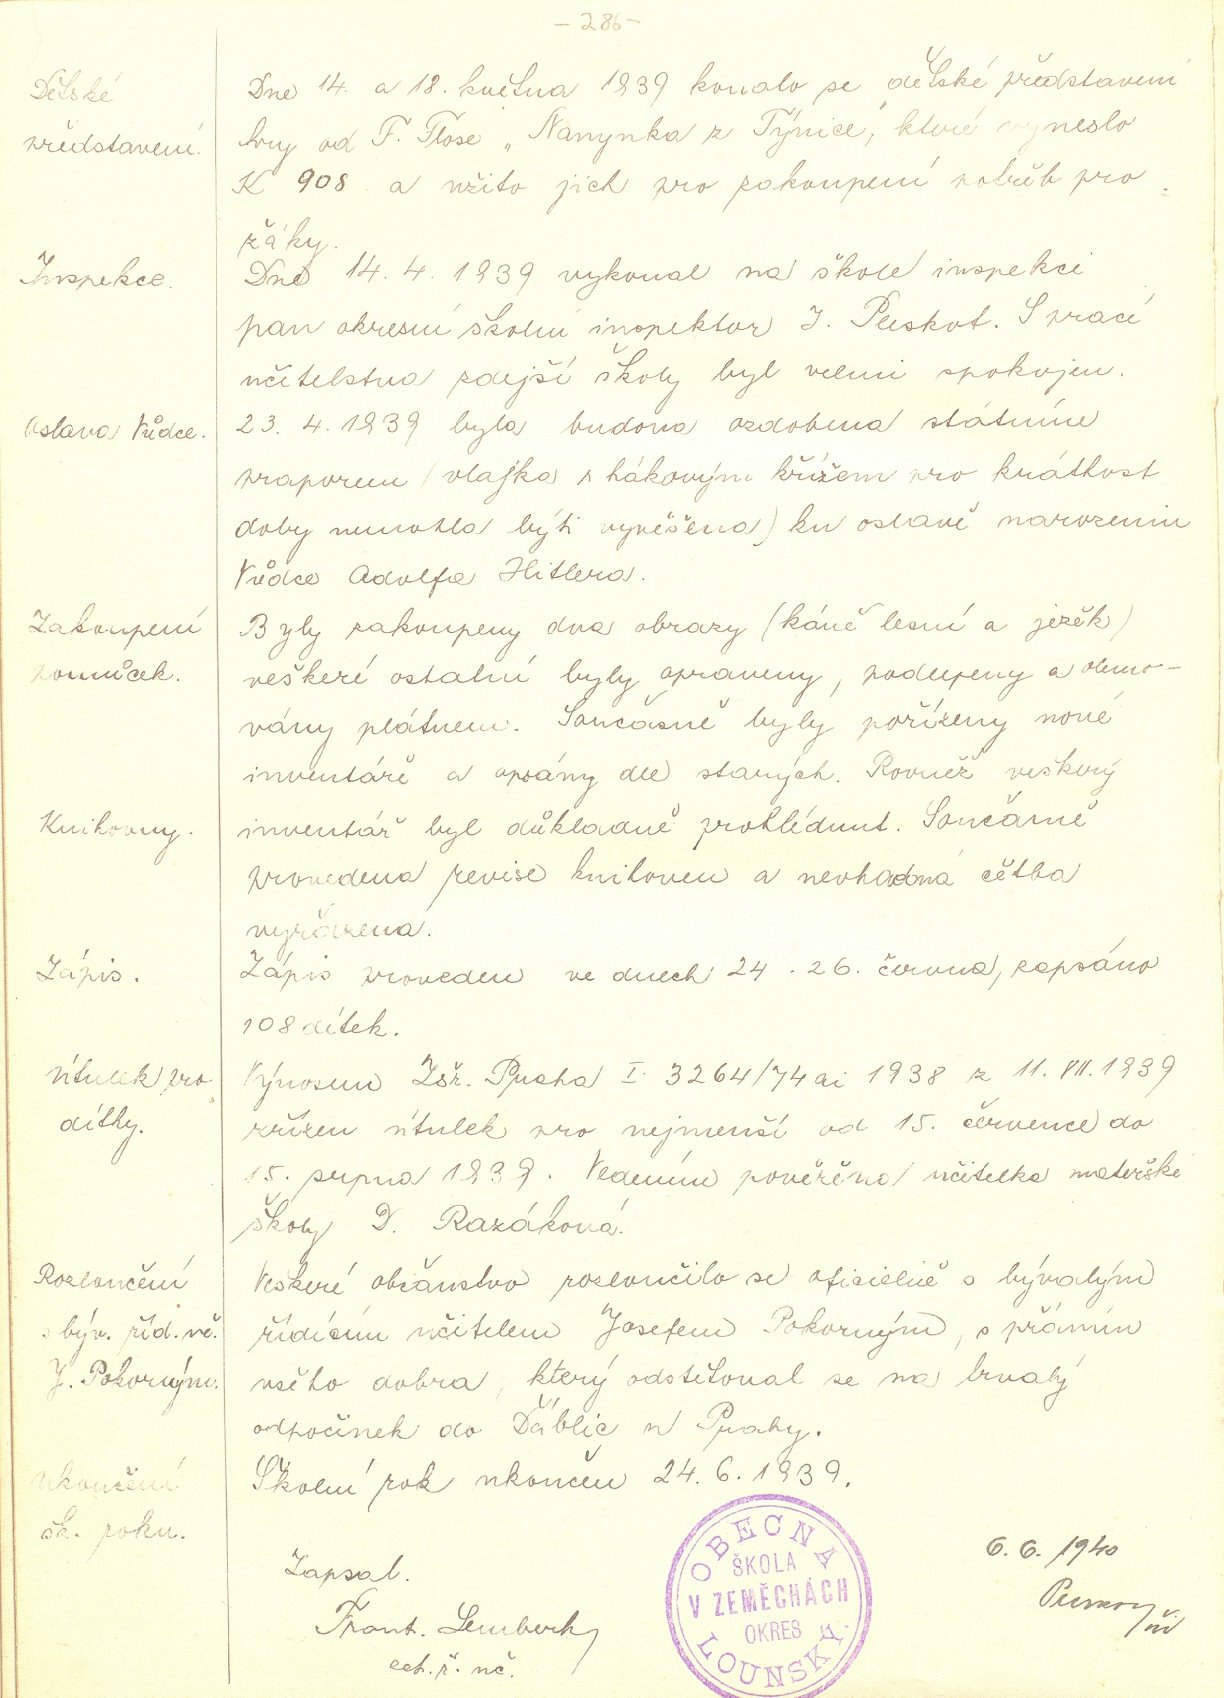 - 286 -
Dětské
představení.
Dne 14. a 18. května 1939 konalo se dětské představení
hry od F. Flose „Nanynka z Týnice", které vyneslo
K 908 a užito jich pro zakoupení potřeb pro
žáky.
Inspekce.
Dne 14. 4. 1939 vykonal na škole inspekci
pan okresní školní inspektor J. Pluskot. S prací
učitelstva zdejší školy byl velmi spokojen.
Oslava Vůdce.
23. 4. 1939 byla budova ozdobena státním
praporem (vlajka s hákovým křížem pro krátkost
doby nemohla býti vyvěšena) ku oslavě narozenin
Vůdce Adolfa Hitlera.
Zakoupení
pomůcek.
Byly zakoupeny dva obrazy (káně lesní a ježěk)
veškeré ostatní byly opraveny, podlepeny a olemo-
vány plátnem. Současně byly pořízeny nové
inventáře a opsány dle starých. Rovněž veškerý
Knihovny.
inventář byl důkladně prohlédnut. Současně
provedena revise knihoven a nevhodná četba
vyřazena.
Zápis.
Zápis proveden ve dnech 24 - 26. června, zapsáno
108 dítek.
Útulek pro
dítky.
Výnosem Zšr. Praha I. 3264/74 ai 1938 z 11. VII. 1939
zřízen útulek pro nejmenší od 15. července do
15. srpna 1939. Vedením pověřena učitelka mateřské
školy D. Razáková.
Rozloučení
s býv. říd. uč.
J. Pokorným.
Veškeré občanstvo rozloučilo se oficielně s bývalým
řídícím učitelem Josefem Pokorným, s přáním
všeho dobra, který odstěhoval se na trvalý
odpočinek do Ďáblic u Prahy.
Ukončení
šk. roku.
Školní rok ukončen 24. 6. 1939.
Zapsal.
Frant. Lemberk
ř. uč.
OBECNÁ
ŠKOLA
V ZEMĚCHÁCH
OKRES
LOUNSKÝ
6. 6. 1940